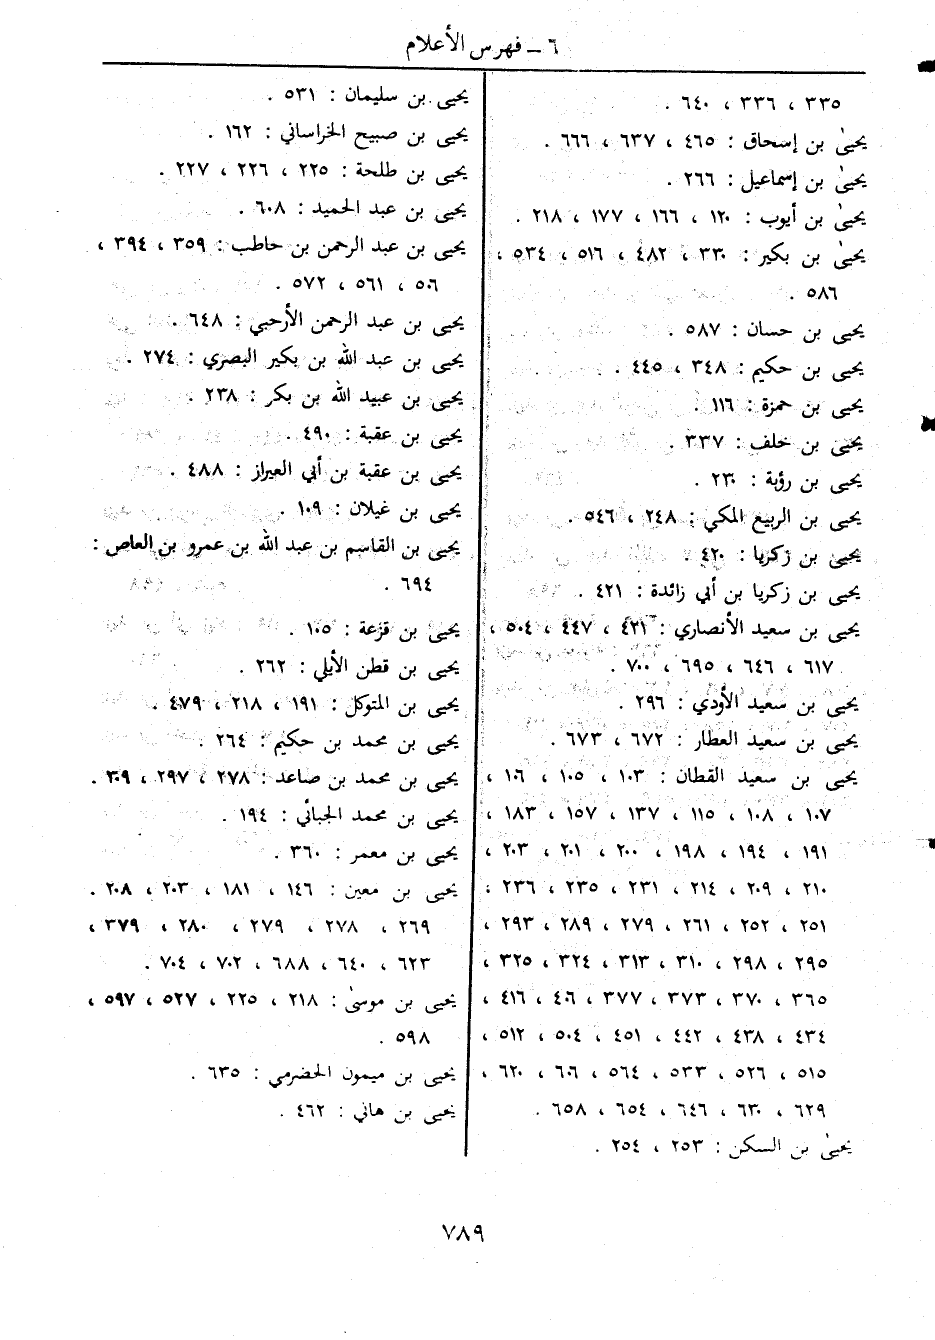 ٦ ـ فهرس الأعلام
٣٣٥ ، ٣٣٦ ، ٦٤٠ .
يحيىٰ بن إسحاق : ٤٦٥ ، ٦٣٧ ، ٦٦٦ .
يحيىٰ بن إسماعيل : ٢٦٦ .
يحيىٰ بن أيوب : ١٢٠ ، ١٦٦ ، ١٧٧ ، ٢١٨ .
يحيىٰ بن بكير : ٣٣٠ ، ٤٨٢ ، ٥١٦ ، ٥٣٤ ،
٥٨٦ .
يحيى بن حسان : ٥٨٧ .
يحيى بن حكيم : ٣٤٨ ، ٤٤٥ .
يحيى بن حمزة : ١١٦ .
يحيى بن خلف : ٣٣٧ .
يحيى بن رؤبة : ٢٣٠ .
يحيى بن الربيع المكي : ٢٤٨ ، ٥٤٦ .
يحيى بن زكريا : ٤٢٠ .
يحيى بن زكريا بن أبي زائدة : ٤٢١ .
يحيى بن سعيد الأنصاري : ٤٢١ ، ٤٤٧ ، ٥٠٤ ،
٦١٧ ، ٦٤٦ ، ٦٩٥ ، ٧٠٠ .
يحيى بن سعيد الأودي : ٢٩٦ .
يحيى بن سعيد العطار : ٦٧٢ ، ٦٧٣ .
يحيى بن سعيد القطان : ١٠٣ ، ١٠٥ ، ١٠٦ ،
١٠٧ ، ١٠٨ ، ١١٥ ، ١٣٧ ، ١٥٧ ، ١٨٣ ،
١٩١ ، ١٩٤ ، ١٩٨ ، ٢٠٠ ، ٢٠١ ، ٢٠٣ ،
٢١٠ ، ٢٠٩ ، ٢١٤ ، ٢٣١ ، ٢٣٥ ، ٢٣٦ ،
٢٥١ ، ٢٥٢ ، ٢٦١ ، ٢٧٩ ، ٢٨٩ ، ٢٩٣ ،
٢٩٥ ، ٢٩٨ ، ٣١٠ ، ٣١٣ ، ٣٢٤ ، ٣٢٥ ،
٣٦٥ ، ٣٧٠ ، ٣٧٣ ، ٣٧٧ ، ٤٠٦ ، ٤١٦ ،
٤٣٤ ، ٤٣٨ ، ٤٤٢ ، ٤٥١ ، ٥٠٤ ، ٥١٢ ،
٥١٥ ، ٥٢٦ ، ٥٣٣ ، ٥٦٤ ، ٦٠٦ ، ٦٢٠ ،
٦٢٩ ، ٦٣٠ ، ٦٤٦ ، ٦٥٤ ، ٦٥٨ .
يحيىٰ بن السكن : ٢٥٣ ، ٢٥٤ .
يحيى بن سليمان : ٥٣١ .
يحيى بن صبيح الخراساني : ١٦٢ .
يحيى بن طلحة : ٢٢٥ ، ٢٢٦ ، ٢٢٧ .
يحيى بن عبد الحميد : ٦٠٨ .
يحيى بن عبد الرحمن بن حاطب : ٣٥٩ ، ٣٩٤ ،
٥٠٦ ، ٥٦١ ، ٥٧٢ .
يحيى بن عبد الرحمن الأرحبي : ٦٤٨ .
يحيى بن عبد الله بن بكير البصري : ٢٧٤ .
يحيى بن عبيد الله بن بكر : ٢٣٨ .
يحيى بن عقبة : ٤٩٠ .
يحيى بن عقبة بن أبي العيراز : ٤٨٨ .
يحيى بن غيلان : ١٠٩ .
يحيى بن القاسم بن عبد الله بن عمرو بن العاص :
٦٩٤ .
يحيى بن قزعة : ١٠٥ .
يحيى بن قطن الأيلي : ٢٦٢ .
يحيى بن المتوكل : ١٩١ ، ٢١٨ ، ٤٧٩ .
يحيى بن محمد بن حكيم : ٢٦٤ .
يحيى بن محمد بن صاعد : ٢٧٨ ، ٢٩٧ ، ٣٠٩ .
يحيى بن محمد الجبائي : ١٩٤ .
يحيى بن معمر : ٣٦٠ .
يحيى بن معين : ١٤٦ ، ١٨١ ، ٢٠٣ ، ٢٠٨ .
٢٦٩ ، ٢٧٨ ، ٢٧٩ ، ٢٨٠ ، ٣٧٩ ،
٦٢٣ ، ٦٤٠ ، ٦٨٨ ، ٧٠٢ ، ٧٠٤ .
يحيى بن موسىٰ : ٢١٨ ، ٢٢٥ ، ٥٢٧ ، ٥٩٧ ،
٥٩٨ .
يحيى بن ميمون الحضرمي : ٦٣٥ .
يحيى بن هاني : ٤٦٢ .
٧٨٩